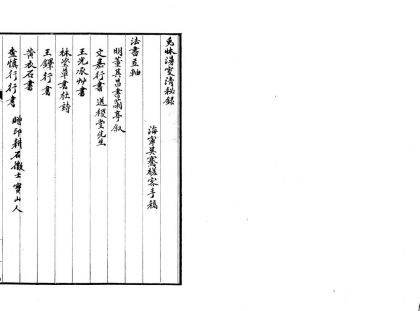 兔牀漫叟清秘錄
海寧吳騫槎客手稿
法書立軸
明董其昌書蘭亭叙
文嘉行書 道復堂先生
王光承艸書
林蕓草書杜詩
王鐸行書
黃衣石書
查慎行行書 贈印耕石徵士寶山人